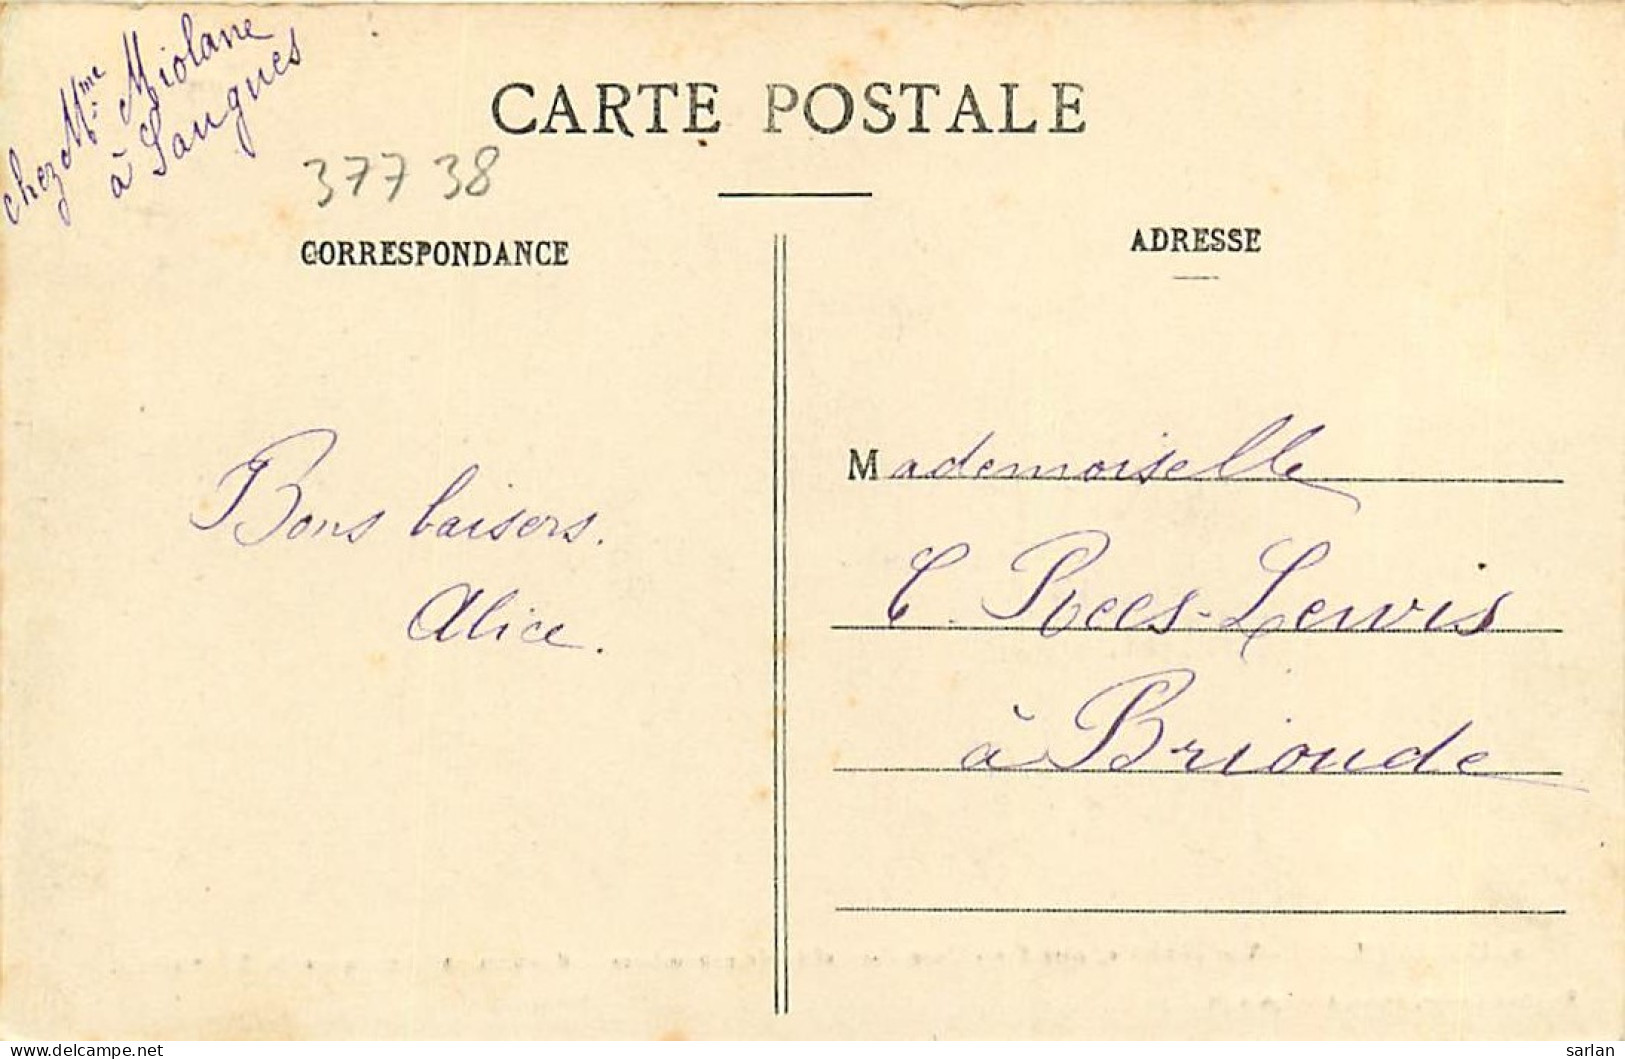 chez Mme Miolane
à Saugues
CARTE POSTALE
377 38
CORRESPONDANCE
ADRESSE
Bons baisers.
Alice.
Mademoiselle
C. Rees-Lewis
à Brioude
www.delcampe.net
sarlan